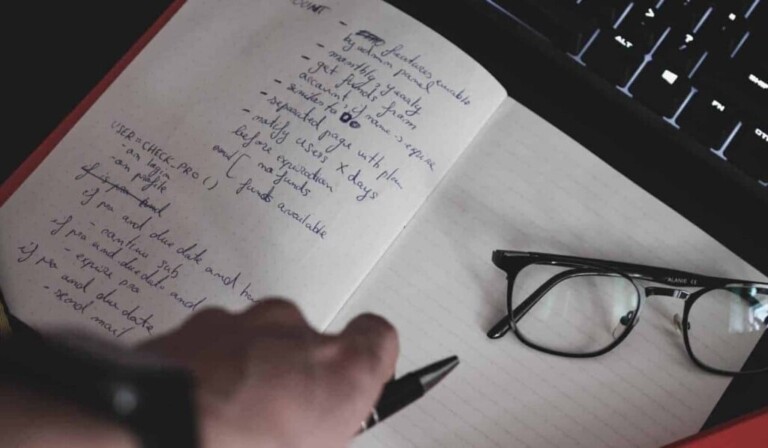 - features available
by admin panel
- monthly, yearly
- get funds from
account, if none → expire
- similar to
- separated page with plan
- notify users X days
before expiration
mail [ no funds
funds available
USER = CHECK_PRO ()
- on login
- on profile
if pro and due date and
- continue sub
if pro and due date and
- expire pro
if pro and due date
- send mail
ALT
FN